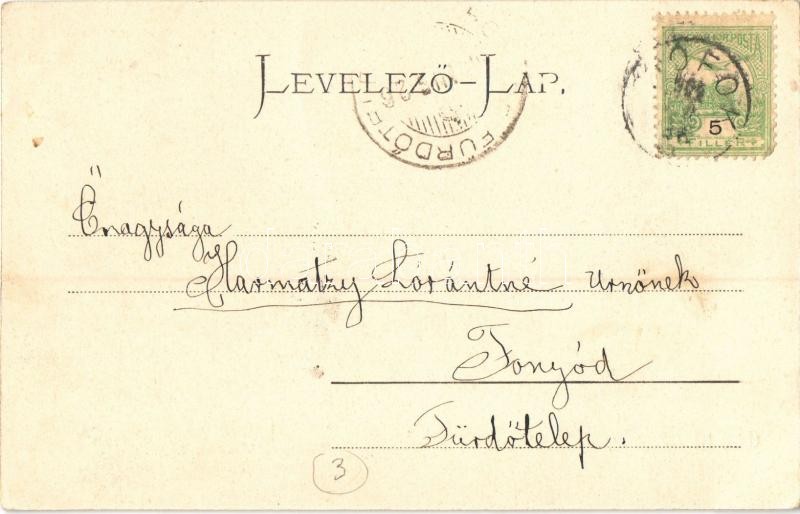 LEVELEZŐ-LAP.
FÜRDŐTE
5
FILLER
Őnagysága
Harmatzy Lorántné Urnőnek
Fonyód
Fürdőtelep.
3